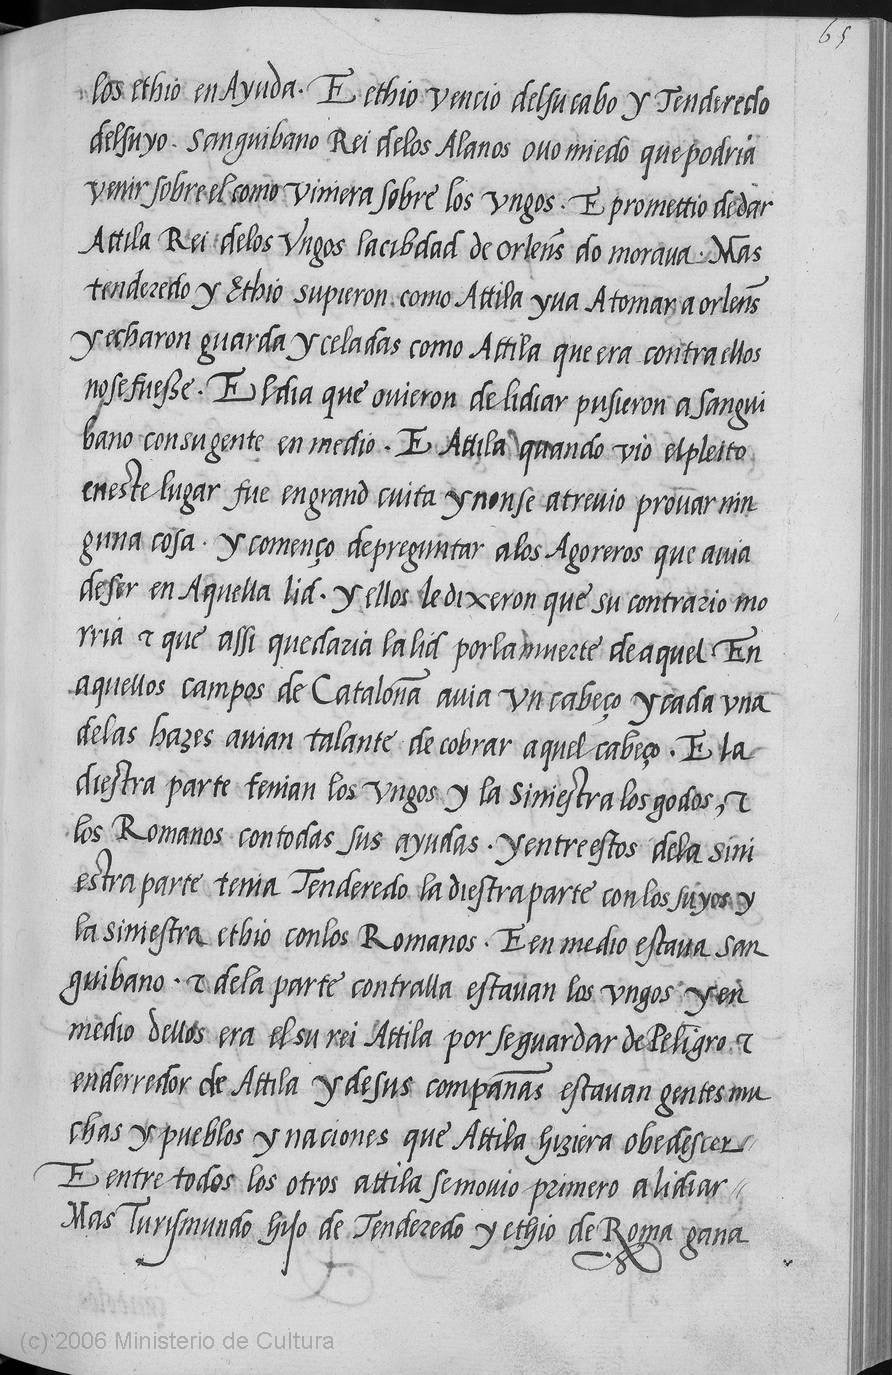 65
los ethio en Ayuda. E ethio vencio delsu cabo y Tenderedo
delsuyo. Sanguibano Rei delos Alanos ouo miedo que podria
venir sobre el como viniera sobre los vngos. E promettio de dar
Attila Rei delos Vngos la cibdad de orlens do moraua. Mas
tenderedo y Ethio supieron como Attila yua A tomar a orlens
y echaron guarda y celadas como Attila que era contra ellos
no se fuesse. El dia que ouieron de lidiar pusieron a sangui
bano con su gente en medio. E Attila quando vio el pleito
en este lugar fue en grand cuita y non se atreuio prouar nin
guna cosa. y començo de preguntar a los Agoreros que auia
de ser en Aquella lid. y ellos le dixeron que su contrario mo
rria τ que assi quedaria la lid por la muerte de aquel En
aquellos campos de Cataloña auia vn cabeço y cada vna
delas hazes auian talante de cobrar aquel cabeço. E la
diestra parte tenian los vngos y la siniestra los godos, τ
los Romanos con todas sus ayudas. y entre estos dela sini
estra parte tenia Tenderedo la diestra parte con los suyos y
la siniestra ethio con los Romanos. E en medio estaua san
guibano. τ dela parte contralla estauan los vngos y en
medio dellos era el su rei Attila por se guardar de Peligro τ
enderredor de Attila y de sus compañas estauan gentes mu
chas y pueblos y naciones que Attila hiziera obedescer
E entre todos los otros attila se mouio primero a lidiar
Mas Turismundo hijo de Tenderedo y ethio de Roma gana
(c) 2006 Ministerio de Cultura